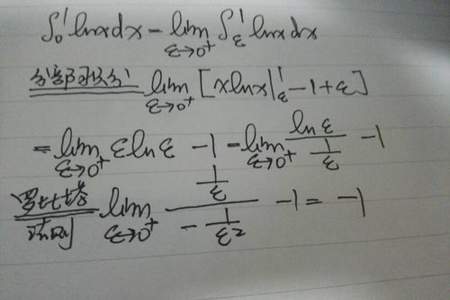 ∫₀¹ lnxdx = lim_{ε→0⁺} ∫_ε¹ lnxdx
分部积分 lim_{ε→0⁺} [xlnx|_ε¹ -1+ε]
= lim_{ε→0⁺} εlnε -1 = lim_{ε→0⁺} lnε/(1/ε) -1
罗比塔法则 lim_{ε→0⁺} (1/ε)/(-1/ε²) -1 = -1